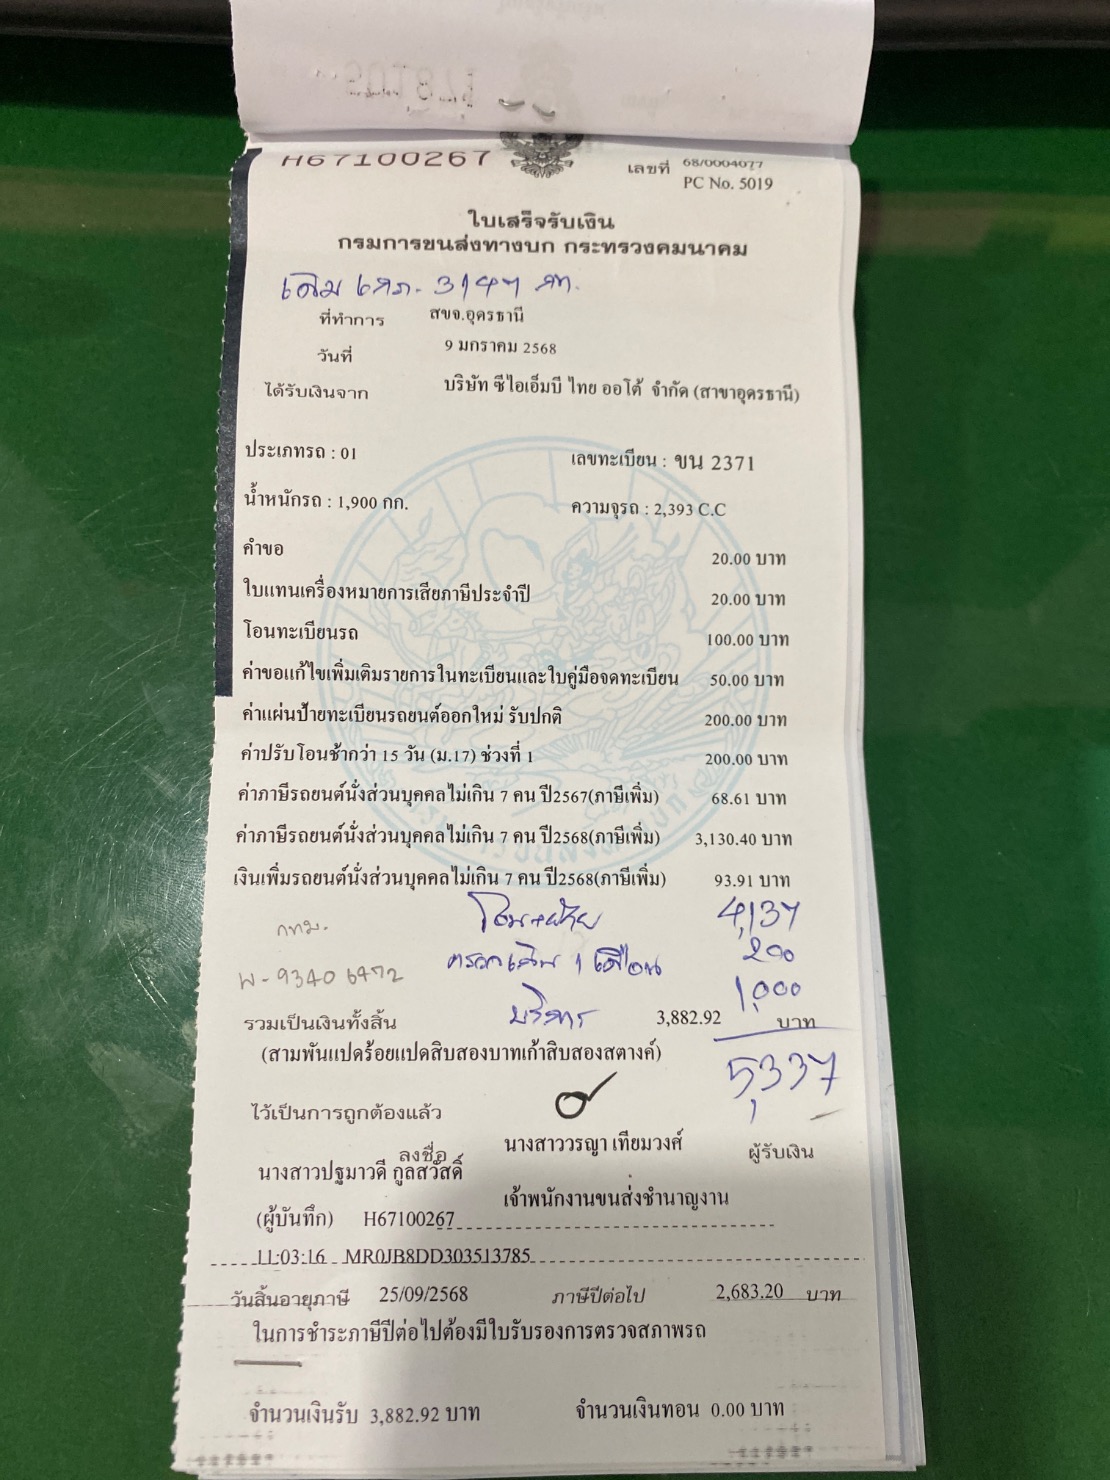 H67100267
เลขที่ 68/0004077
PC No. 5019
ใบเสร็จรับเงิน
กรมการขนส่งทางบก กระทรวงคมนาคม
เดิม 3147
ที่ทำการ สขจ.อุดรธานี
วันที่ 9 มกราคม 2568
ได้รับเงินจาก บริษัท ซีไอเอ็มบี ไทย ออโต้ จำกัด (สาขาอุดรธานี)
ประเภทรถ : 01 เลขทะเบียน : ขน 2371
น้ำหนักรถ : 1,900 กก. ความจุรถ : 2,393 C.C
คำขอ 20.00 บาท
ใบแทนเครื่องหมายการเสียภาษีประจำปี 20.00 บาท
โอนทะเบียนรถ 100.00 บาท
ค่าขอแก้ไขเพิ่มเติมรายการในทะเบียนและใบคู่มือจดทะเบียน 50.00 บาท
ค่าแผ่นป้ายทะเบียนรถยนต์ออกใหม่ รับปกติ 200.00 บาท
ค่าปรับโอนช้ากว่า 15 วัน (ม.17) ช่วงที่ 1 200.00 บาท
ค่าภาษีรถยนต์นั่งส่วนบุคคลไม่เกิน 7 คน ปี2567(ภาษีเพิ่ม) 68.61 บาท
ค่าภาษีรถยนต์นั่งส่วนบุคคลไม่เกิน 7 คน ปี2568(ภาษีเพิ่ม) 3,130.40 บาท
เงินเพิ่มรถยนต์นั่งส่วนบุคคลไม่เกิน 7 คน ปี2568(ภาษีเพิ่ม) 93.91 บาท
กทม. โอน+ย้าย 4,137
พ-9340 6472 1 เดือน 200
บริการ 1,000
รวมเป็นเงินทั้งสิ้น 3,882.92 บาท
(สามพันแปดร้อยแปดสิบสองบาทเก้าสิบสองสตางค์) 5,337
ไว้เป็นการถูกต้องแล้ว
ลงชื่อ นางสาววรญา เทียมวงศ์ ผู้รับเงิน
นางสาวปฐมาวดี กูลสวัสดิ์
เจ้าพนักงานขนส่งชำนาญงาน
(ผู้บันทึก) H67100267
11:03:16 MR0JB8DD303513785
วันสิ้นอายุภาษี 25/09/2568 ภาษีปีต่อไป 2,683.20 บาท
ในการชำระภาษีปีต่อไปต้องมีใบรับรองการตรวจสภาพรถ
จำนวนเงินรับ 3,882.92 บาท จำนวนเงินทอน 0.00 บาท